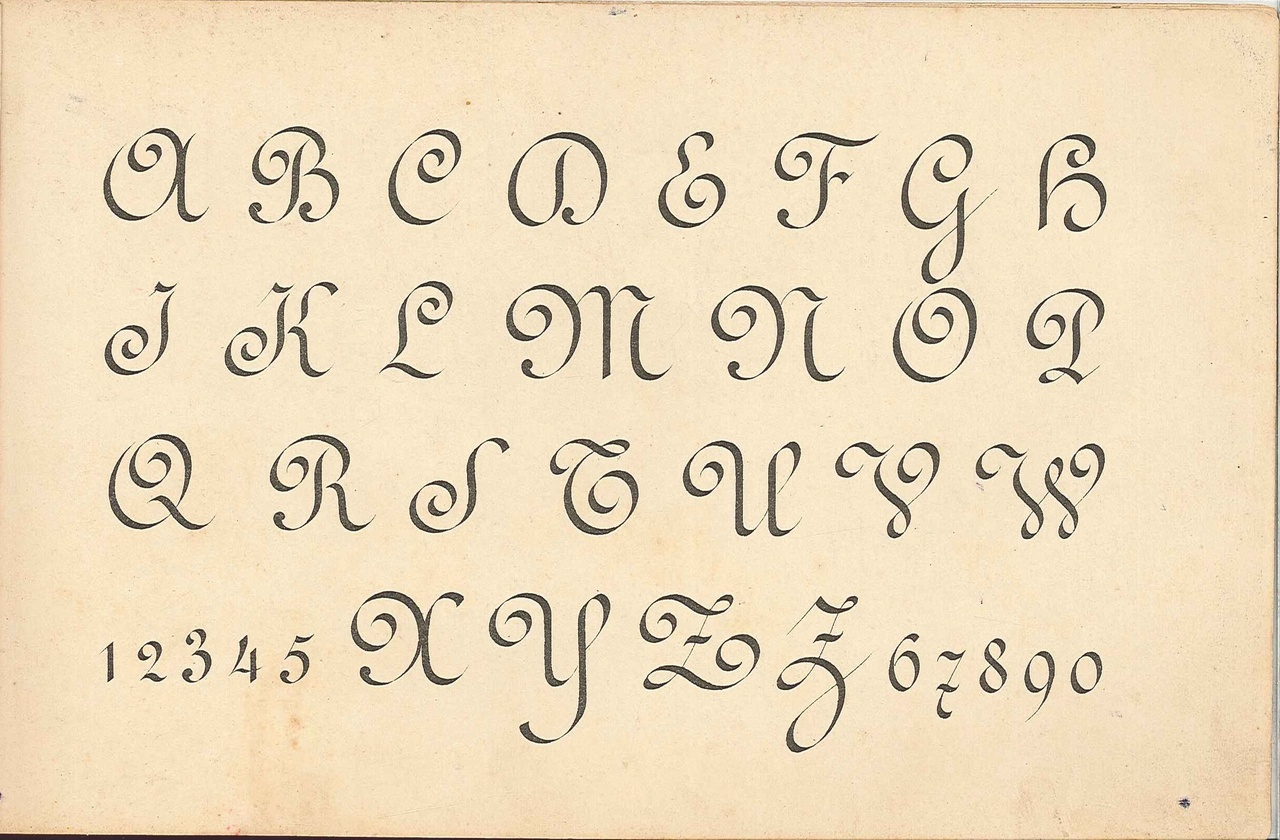 A B C D E F G H
I K L M N O P
Q R S T U V W
1 2 3 4 5 X Y Z Z 6 7 8 9 0